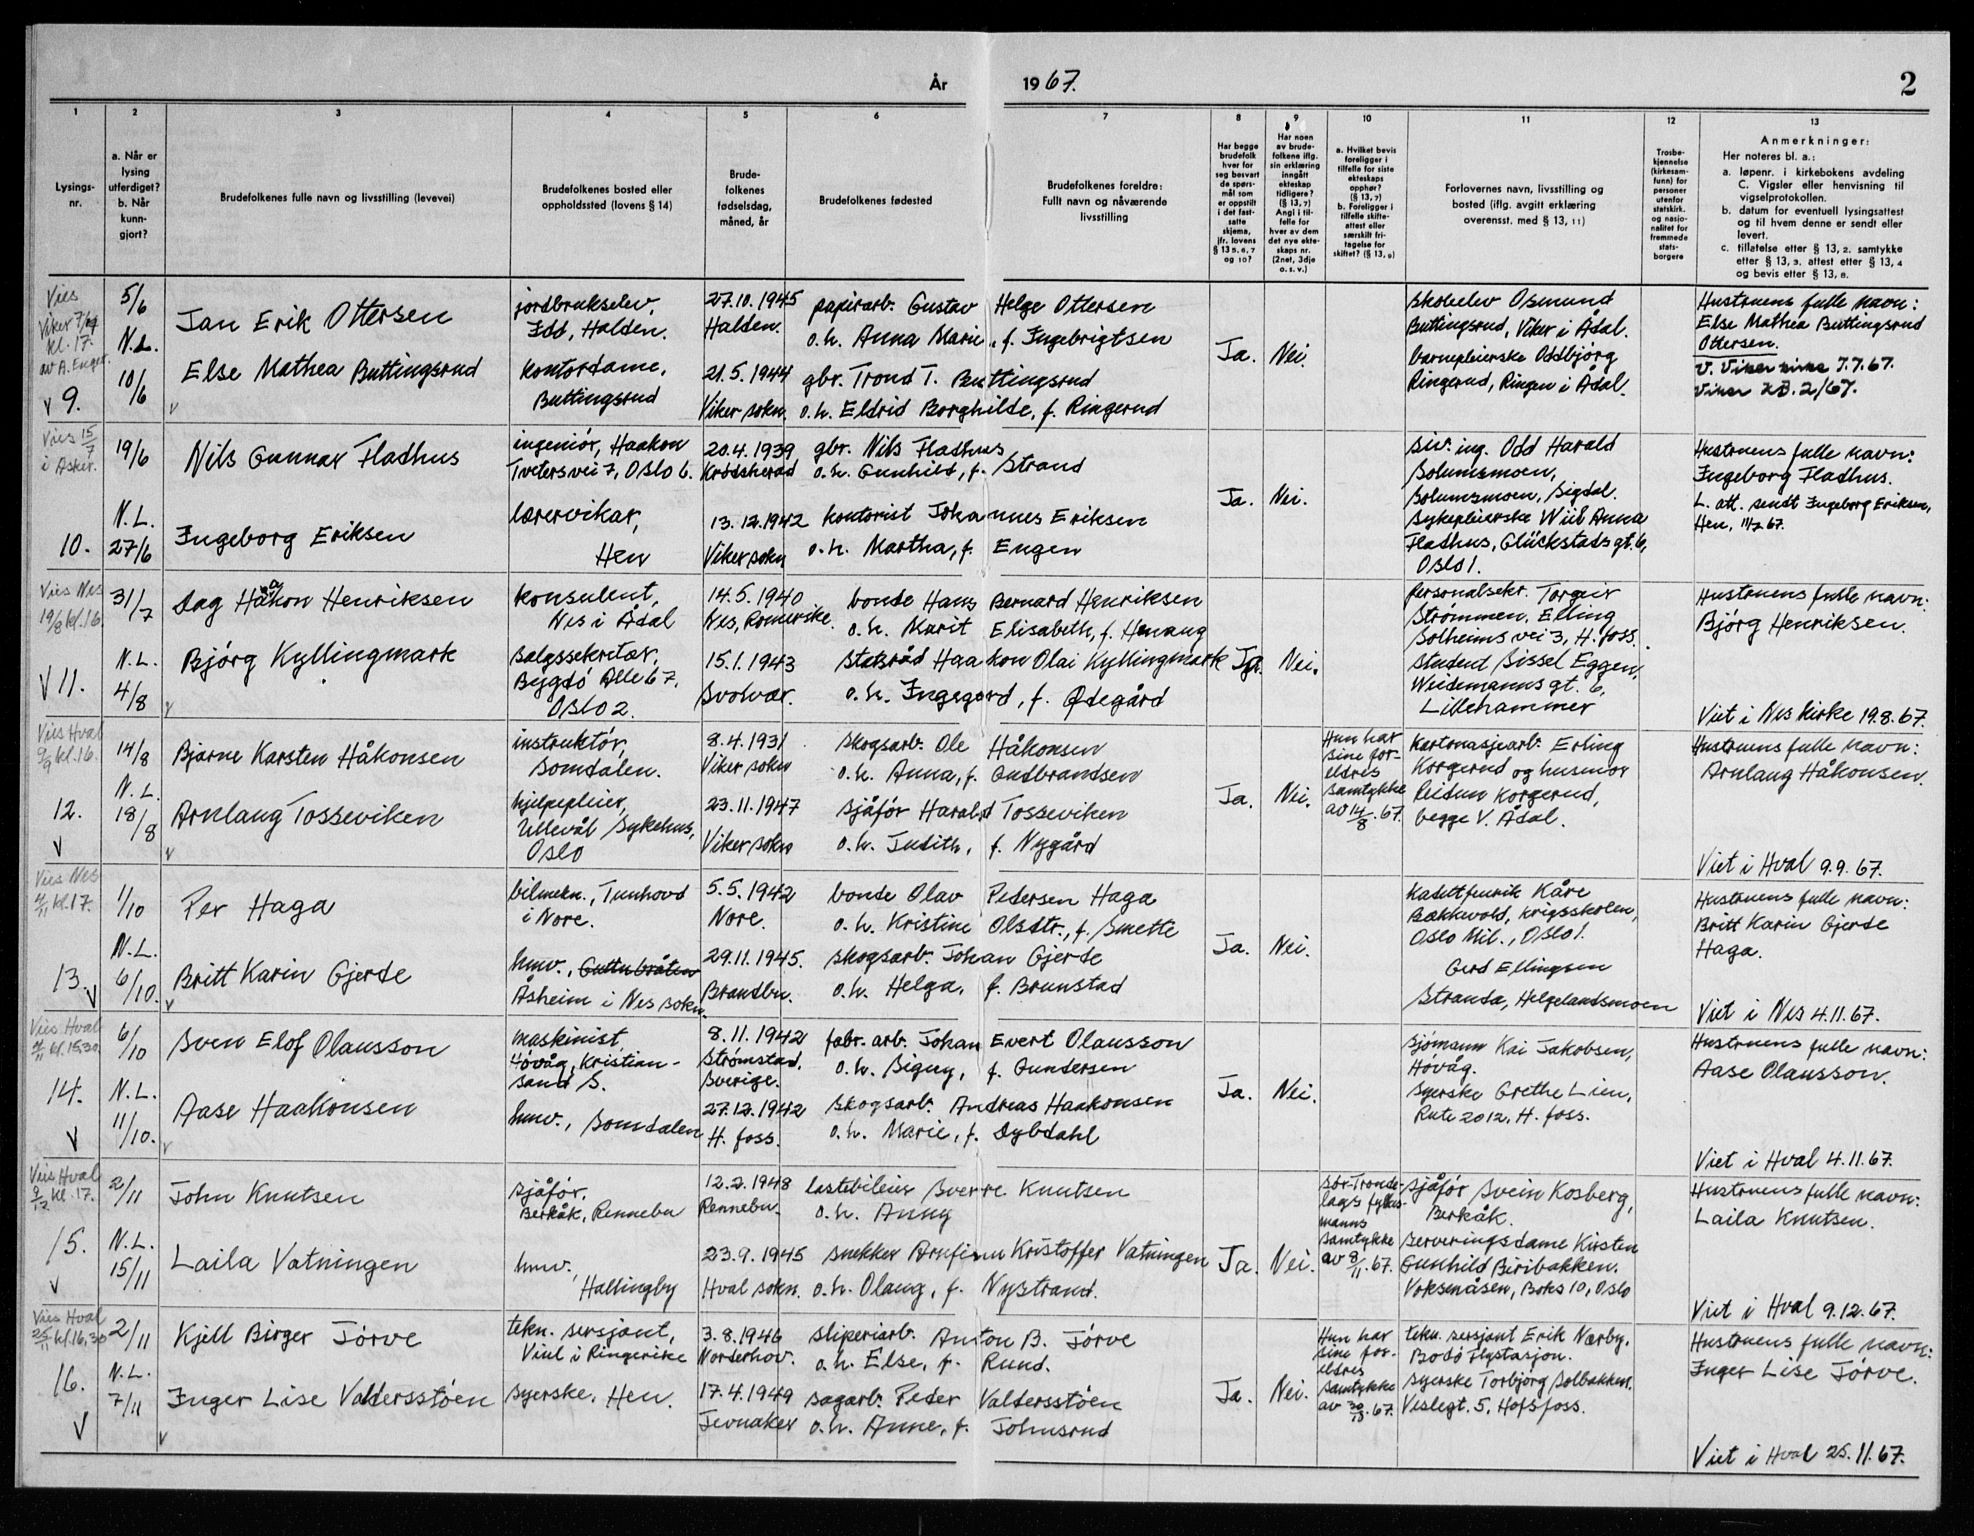 År 1967.
2
1
2
3
4
5
6
7
8
9
10
11
12
13
Lysings-
nr.
a. Når er
lysing
utferdiget?
b. Når
kunn-
gjort?
Brudefolkenes fulle navn og livsstilling (levevei)
Brudefolkenes bosted eller
oppholdssted (lovens § 14)
Brude-
folkenes
fødselsdag,
måned, år
Brudefolkenes fødested
Brudefolkenes foreldre:
Fullt navn og nåværende
livsstilling
Har begge
brudefolk
hver for
seg besvart
de spørs-
mål som
er oppstilt
i det fast-
satte
skjema,
jfr. lovens
§ 13 5, 6, 7
og 10?
Har noen
av brude-
folkene iflg.
sin erklæring
inngått
ekteskap
tidligere?
(§ 13, 7)
Angi i til-
felle for
hver av dem
det nye ekte-
skaps nr.
(2net, 3dje
o. s. v.)
a. Hvilket bevis
foreligger i
tilfelle for siste
ekteskaps
opphør?
(§ 13, 7)
b. Foreligger i
tilfelle skifte-
attest eller
særskilt fri-
tagelse for
skiftet? (§ 13, 9)
Forlovernes navn, livsstilling og
bosted (iflg. avgitt erklæring
overensst. med § 13, 11)
Trosbe-
kjennelse
(kirkesam-
funn) for
personer
utenfor
statskirk.
og nasjo-
nalitet for
fremmede
stats-
borgere
Anmerkninger:
Her noteres bl. a.:
a. løpenr. i kirkebokens avdeling
C. Vigsler eller henvisning til
vigselprotokollen.
b. datum for eventuell lysingsattest
og til hvem denne er sendt eller
levert.
c. tillatelse etter § 13, 2. samtykke
etter § 13, 3. attest etter § 13, 4
og bevis etter § 13, 8.
Vies
Viker 7/7
kl. 17.
av A. Enger.
v 9.
5/6
N.L.
10/6
Jan Erik Ottersen
Else Mathea Buttingsrud
jordbrukselev,
Idd, Halden.
kontordame,
Buttingsrud
27.10.1945
Halden.
21.5.1944
Viker sokn.
papirarb. Gustav Helge Ottersen
o.h. Anna Marie, f. Ingebrigtsen
gbr. Trond T. Buttingsrud
o.h. Eldrid Borghilde, f. Ringerud
Ja.
Nei.
skoleelev Osmund
Buttingsrud, Viker i Ådal.
barnepleierske Oddbjørg
Ringerud, Ringen i Ådal.
Hustruens fulle navn:
Else Mathea Buttingsrud
Ottersen.
V. Viker kirke 7.7.67.
Viker KB. 2/67.
Vies 15/7
i Asker.
10.
19/6
N.L.
27/6
Nils Gunnar Fladhus
Ingeborg Eriksen
ingeniør, Haakon
Tvetersvei 7, Oslo 6.
lærervikar,
Hen
20.4.1939
Krødsherad
13.12.1942
Viker sokn
gbr. Nils Fladhus
o.h. Gunhild, f. Strand
kontorist Johannes Eriksen
o.h. Martha, f. Engen
Ja.
Nei.
siv. ing. Odd Harald
Solumsmoen,
Solumsmoen, Sigdal.
sykepleierske Wiil Anna
Fladhus, Glückstadsgt. 6,
Oslo 1.
Hustruens fulle navn:
Ingeborg Fladhus.
L. att. sendt Ingeborg Eriksen,
Hen, 11/7 67.
Vies Nes
19/8 kl. 16
v 11.
31/7
N.L.
4/8
Dag Håkon Henriksen
Bjørg Kyllingmark
konsulent,
Nes i Ådal
salgssekretær,
Bygdø Alle 67,
Oslo 2.
14.5.1940
Nes, Romerike.
15.1.1943
Svolvær.
bonde Hans Bernard Henriksen
o.h. Marit Elisabeth, f. Henaug
Statsråd Haakon Olai Kyllingmark
o.h. Ingegerd, f. Ødegård
Ja.
Nei.
personalsekr. Torgeir
Strømmen, Elling
Solheims vei 3, H.foss.
student Sissel Eggen,
Weidemannsgt. 6,
Lillehammer
Hustruens fulle navn:
Bjørg Henriksen.
Viet i Nes kirke 19.8.67.
Vies Hval
9/9 kl. 16.
12.
v
14/8
N.L.
18/8
Bjarne Karsten Håkonsen
Arnlaug Tosseviken
instruktør,
Somdalen.
hjelpepleier,
Ullevål Sykehus,
Oslo
8.4.1931
Viker sokn
23.11.1947
Viker sokn
skogsarb. Ole Håkonsen
o.h. Anna, f. Gudbrandsen
sjåfør Harald Tosseviken
o.h. Judith, f. Nygård
Ja.
Nei.
Hun har
sine for-
eldres
samtykke
av 14/8. 67.
kartonasjearb. Erling
Korgerud og husmor
Reidun Korgerud,
begge V. Ådal.
Hustruens fulle navn:
Arnlaug Håkonsen.
Viet i Hval 9.9.67.
Vies Nes
4/11 kl. 17.
13. v
1/10
N.L.
6/10.
Per Haga
Britt Karin Gjerde
bilmekn., Tunhovd
i Nore.
hmv., Guttubråten
Åsheim i Nes sokn.
5.5.1942
Nore.
29.11.1945.
Brandbu.
bonde Olav Pedersen Haga
o.h. Kristine Olsdtr., f. Smette
skogsarb. Johan Gjerde
o.h. Helga, f. Brunstad
Ja.
Nei.
kadettfenrik Kåre
Bækkevold, Krigsskolen,
Oslo Mil., Oslo 1.
Gerd Ellingsen
Stranda, Helgelandsmoen
Hustruens fulle navn:
Britt Karin Gjerde
Haga.
Viet i Nes 4.11.67.
Vies Hval
4/11 kl. 15.30
14.
v
6/10
N.L.
11/10.
Sven Elof Olausson
Aase Haakonsen
maskinist,
Høvåg, Kristian-
sand S.
hmv., Somdalen
8.11.1942
Strømstad,
Sverige.
27.12.1942
H. foss.
fabr. arb. Johan Evert Olausson
o.h. Signy, f. Gundersen
skogsarb. Andreas Haakonsen
o.h. Marie, f. Dybdahl
Ja.
Nei.
Sjømann Kai Jakobsen,
Høvåg.
syerske Grethe Lien,
Rute 2012, H. foss.
Hustruens fulle navn:
Aase Olausson.
Viet i Hval 4.11.67.
Vies Hval
9/12 kl. 17.
15.
v
2/11
N.L.
15/11
John Knutsen
Laila Vatningen
sjåfør,
Berkåk, Rennebu
hmv.,
Hallingby
12.2.1948
Rennebu.
23.9.1945
Hval sokn.
lastebileier Sverre Knutsen
o.h. Anny
snekker Arnfinn Kristoffer Vatningen
o.h. Olaug, f. Nystrand.
Ja.
Nei.
Sør-Trønde-
lags fylkes-
manns
samtykke
av 8/11. 67.
sjåfør Svein Kosberg,
Berkåk.
serveringsdame Kirsten
Gunhild Biribakken.
Voksenåsen, Boks 10, Oslo
Hustruens fulle navn:
Laila Knutsen.
Viet i Hval 9.12.67.
Vies Hval
25/11 kl. 16,30
16.
v
2/11
N.L.
7/11
Kjell Birger Jørve
Inger Lise Valdersstøen
tekn. sersjant,
Viul i Ringerike
syerske, Hen.
3.8.1946
Norderhov.
17.4.1949
Jevnaker
sliperiarb. Anton B. Jørve
o.h. Else, f. Rund.
sagarb. Peder Valdersstøen
o.h. Anne, f. Johnsrud
Ja.
Nei.
Hun har
sine for-
eldres
samtykke
av 30/10. 67.
tekn. sersjant Erik Nærby,
Bodø flystasjon.
syerske Torbjørg Solbakken,
Veslegt. 5, Hofsfoss.
Hustruens fulle navn:
Inger Lise Jørve.
Viet i Hval 25.11.67.